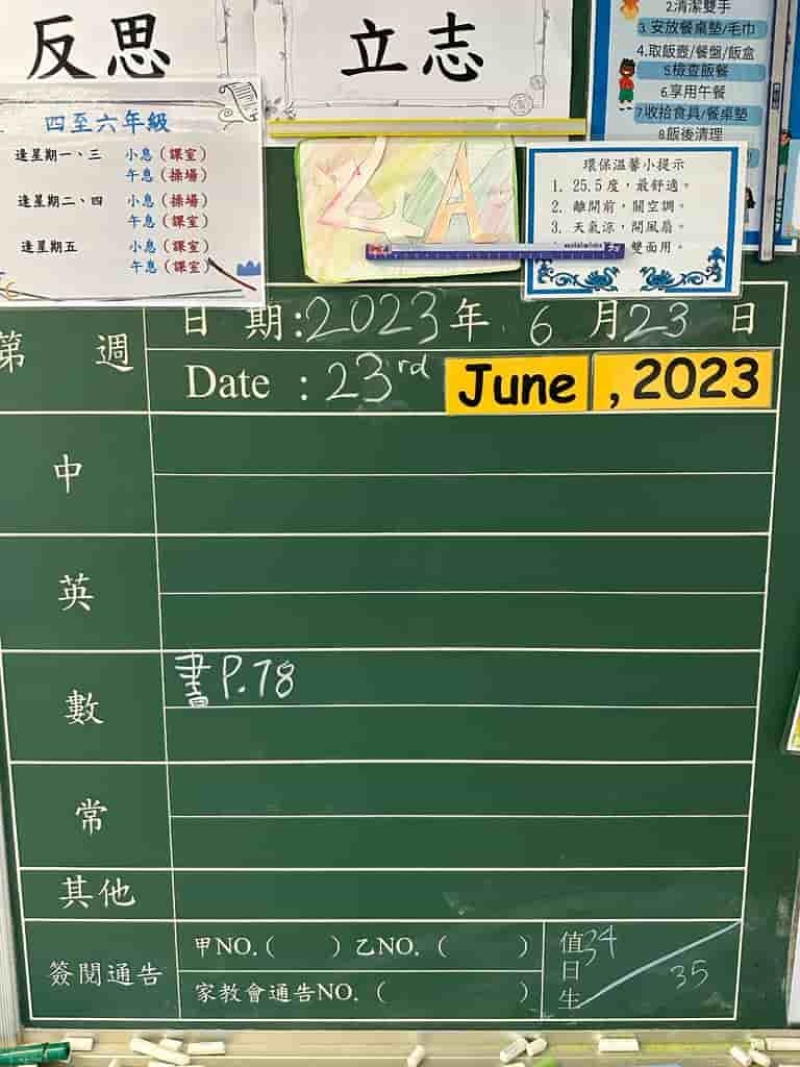 反思
立志
2.清潔雙手
3.安放餐桌墊/毛巾
4.取飯壺/餐盤/飯盒
5.檢查飯餐
6.享用午餐
7收拾食具/餐桌墊
8.飯後清理
四至六年級
逢星期一、三 小息(課室)
午息(操場)
逢星期二、四 小息(操場)
午息(課室)
逢星期五 小息(課室)
午息(課室)
4A
環保溫馨小提示
1. 25.5度,最舒適。
2. 離開前,關空調。
3. 天氣涼,開風扇。
雙面用。
第 週
日 期:2023年 6 月23 日
Date : 23rd June , 2023
中
英
數 書P.78
常
其他
簽閱通告
甲NO.( ) 乙NO.( )
家教會通告NO.( )
值日生 34 / 35